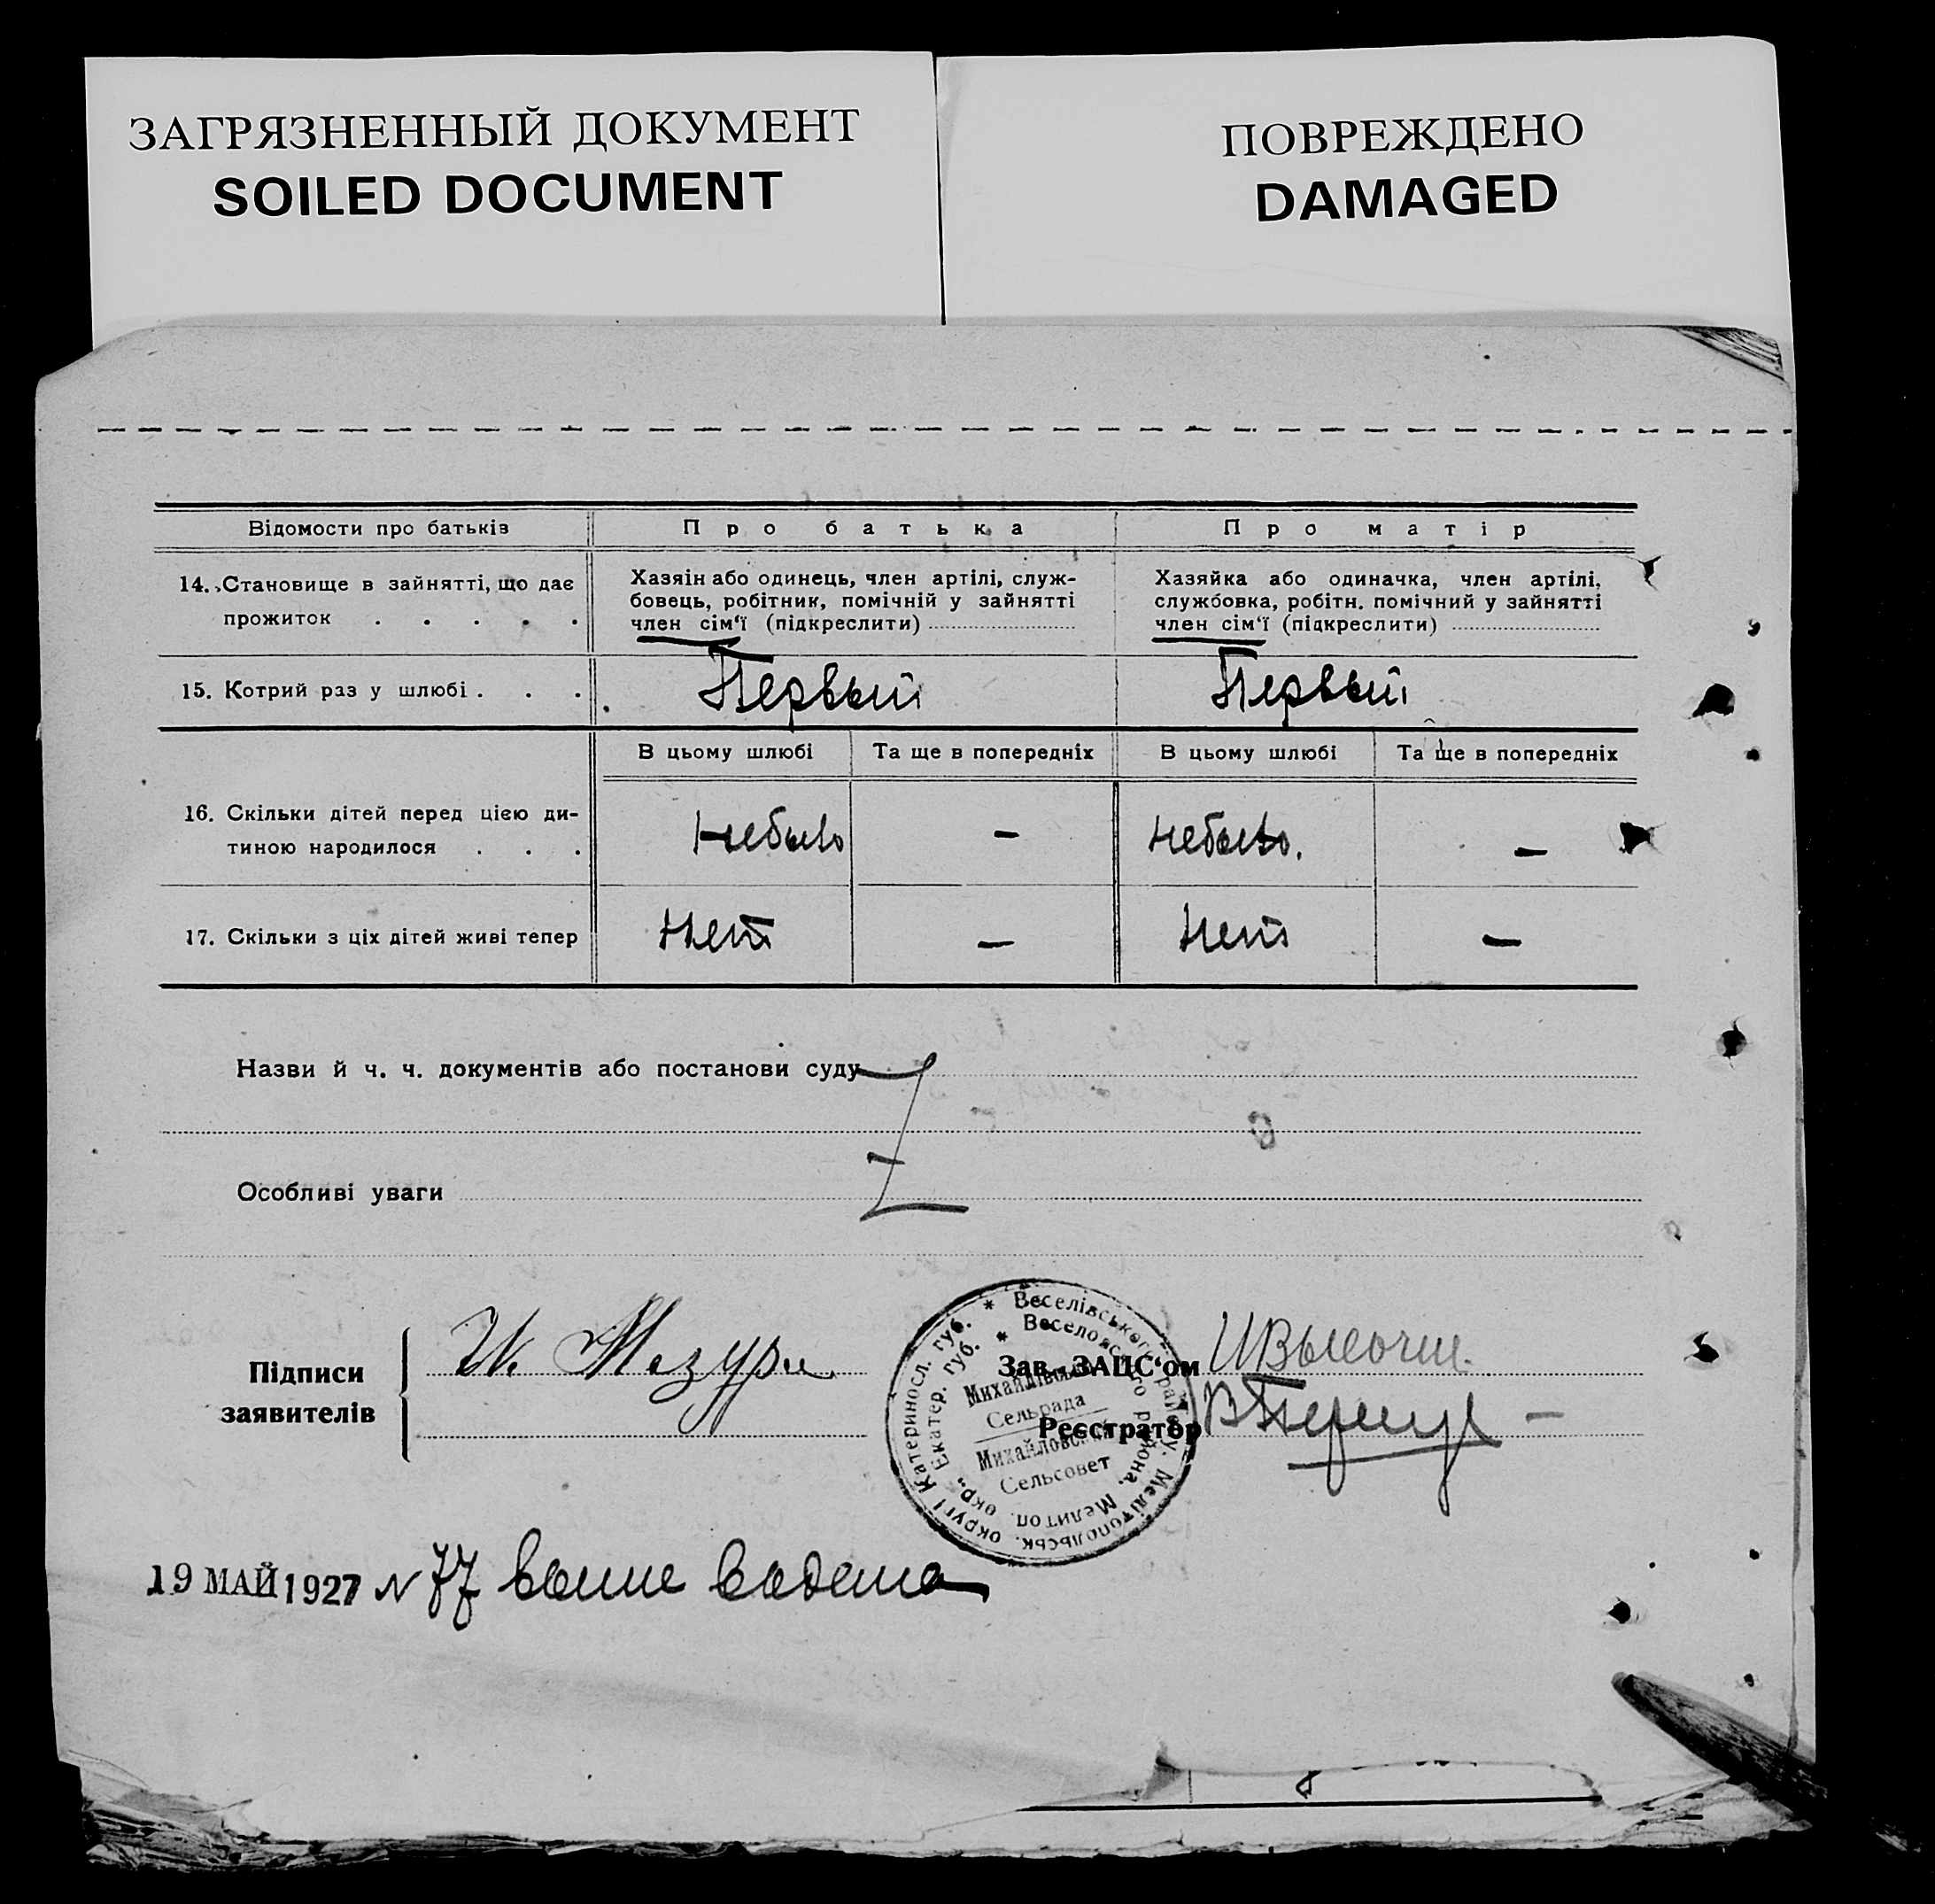 ЗАГРЯЗНЕННЫЙ ДОКУМЕНТ
SOILED DOCUMENT
ПОВРЕЖДЕНО
DAMAGED
Відомости про батьків
Про батька
Про матір
14. Становище в зайнятті, що дає
прожиток . . . . .
Хазяін або одинець, член артілі, служ-
бовець, робітник, помічній у зайнятті
член сім‘ї (підкреслити)
Хазяйка або одиначка, член артілі,
службовка, робітн. помічний у зайнятті
член сім‘ї (підкреслити)
15. Котрий раз у шлюбі . . .
Первый
Первый
В цьому шлюбі
Та ще в попередніх
В цьому шлюбі
Та ще в попередніх
16. Скільки дітей перед цією ди-
тиною народилося . . .
Небыло
—
Небыло.
—
17. Скільки з ціх дітей живі тепер
Нет
—
Нет
—
Назви й ч. ч. документів або постанови суду
Особливі уваги
Підписи
заявителів
Зав. ЗАЦС‘ом
Реєстратор
* Веселівського району. Мелітопольськ. округі Катериносл. губ.
* Веселовского района, Мелитоп. окр., Екатер. губ.
Михайлівська
Сельрада
Михайловский
Сельсовет
19 МАЙ 1927 N 77